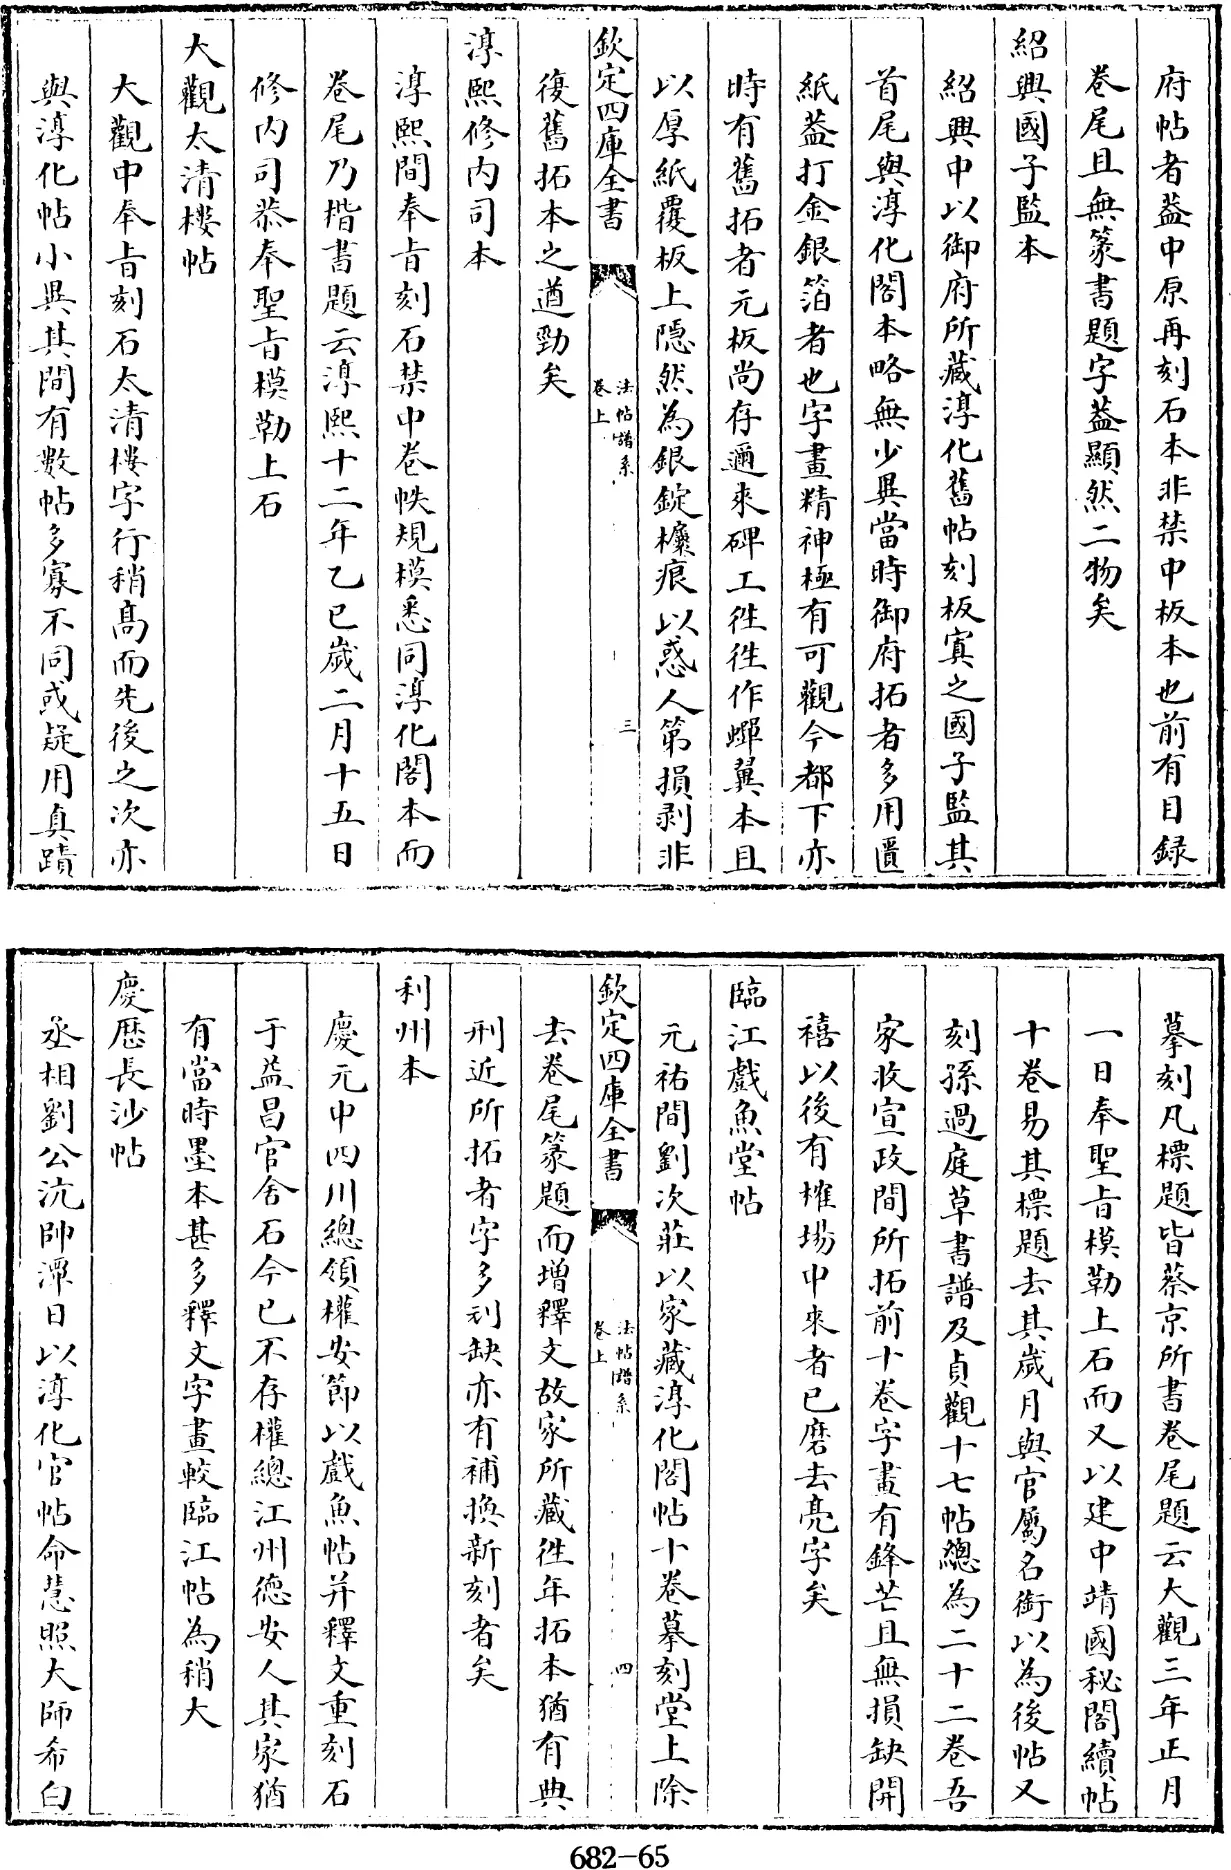 府帖者葢中原再刻石本非禁中板本也前有目録
卷尾且無篆書題字葢顯然二物矣
紹興國子監本
紹興中以御府所藏淳化舊帖刻板寘之國子監其
首尾與淳化閣本略無少異當時御府拓者多用匱
紙葢打金銀箔者也字畫精神極有可觀今都下亦
時有舊拓者元板尚存邇來碑工徃徃作蟬翼本且
以厚紙覆板上隱然為銀錠㯲痕以惑人第損剥非
欽定四庫全書
法帖譜系
卷上
三
復舊拓本之遒勁矣
淳熙修内司本
淳熙間奉㫖刻石禁中卷帙規模悉同淳化閣本而
卷尾乃楷書題云淳熙十二年乙巳歲二月十五日
修内司恭奉聖㫖模勒上石
大觀太清樓帖
大觀中奉㫖刻石太清樓字行稍髙而先後之次亦
與淳化帖小異其間有數帖多寡不同或疑用真蹟
摹刻凡標題皆蔡京所書卷尾題云大觀三年正月
一日奉聖㫖模勒上石而又以建中靖國秘閣續帖
十卷易其標題去其歲月與官屬名銜以為後帖又
刻孫過庭草書譜及貞觀十七帖總為二十二卷吾
家收宣政間所拓前十卷字畫有鋒芒且無損缺開
禧以後有榷場中來者已磨去亮字矣
臨江戲魚堂帖
元祐間劉次莊以家藏淳化閣帖十卷摹刻堂上除
欽定四庫全書
法帖譜系
卷上
四
去卷尾篆題而增釋文故家所藏徃年拓本猶有典
刑近所拓者字多刓缺亦有補換新刻者矣
利州本
慶元中四川總領權安節以戲魚帖并釋文重刻石
于益昌官舍石今已不存權總江州德安人其家猶
有當時墨本甚多釋文字畫較臨江帖為稍大
慶歴長沙帖
丞相劉公沆帥潭日以淳化官帖命慧照大師希白
682-65